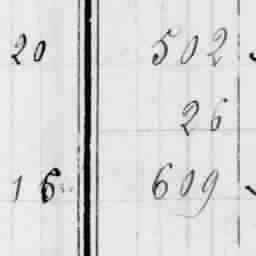 20 502
26
16 609